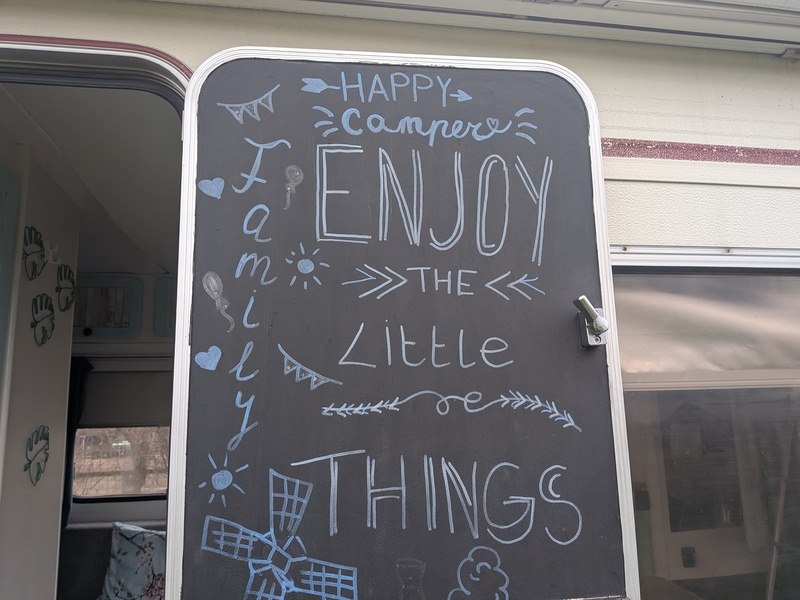 HAPPY
Camper
ENJOY
THE
Little
THINGS
Family